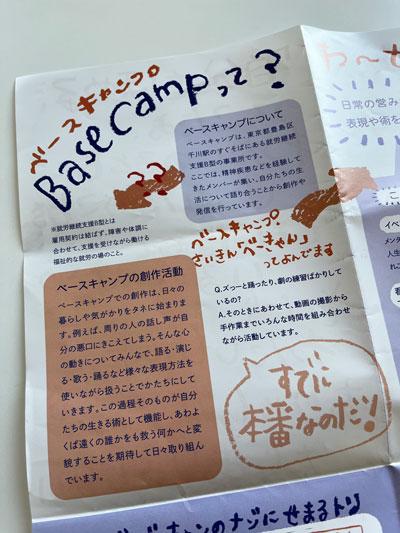 ベースキャンプ。
Base Campって?
ベースキャンプについて
ベースキャンプは、東京都豊島区
千川駅のすぐそばにある就労継続
支援B型の事業所です。
ここでは、精神疾患などを経験して
きたメンバーが集い、自分たちの生
活について語り合うことから創作や
発信を行っています。
※就労継続支援B型とは
雇用契約は結ばず、障害や体調に
合わせて、支援を受けながら働ける
福祉的な就労の場のこと。
ベースキャンプ!
さいきん「べーきゃん」
ってよんでます
ベースキャンプの創作活動
ベースキャンプでの創作は、日々の
暮らしや気がかりをタネに始まりま
す。例えば、周りの人の話し声が自
分の悪口にきこえてしまう。そんな心
の動きについてみんなで、語る・演じ
る・歌う・踊るなど様々な表現方法を
使いながら扱うことでかたちにして
いきます。この過程そのものが自分
たちの生きる術として機能し、あわよ
くば遠くの誰かをも救う何かへと変
貌することを期待して日々取り組ん
でいます。
Q.ズっーと踊ったり、劇の練習ばかりして
いるの?
A.そのときにあわせて、動画の撮影から
手作業までいろんな時間を組み合わせ
ながら活動しています。
すでに
本番なのだ!
わ〜せ
日常の営み
表現や術を
イベ
メンタ
人生
のナゾにせまるトリ